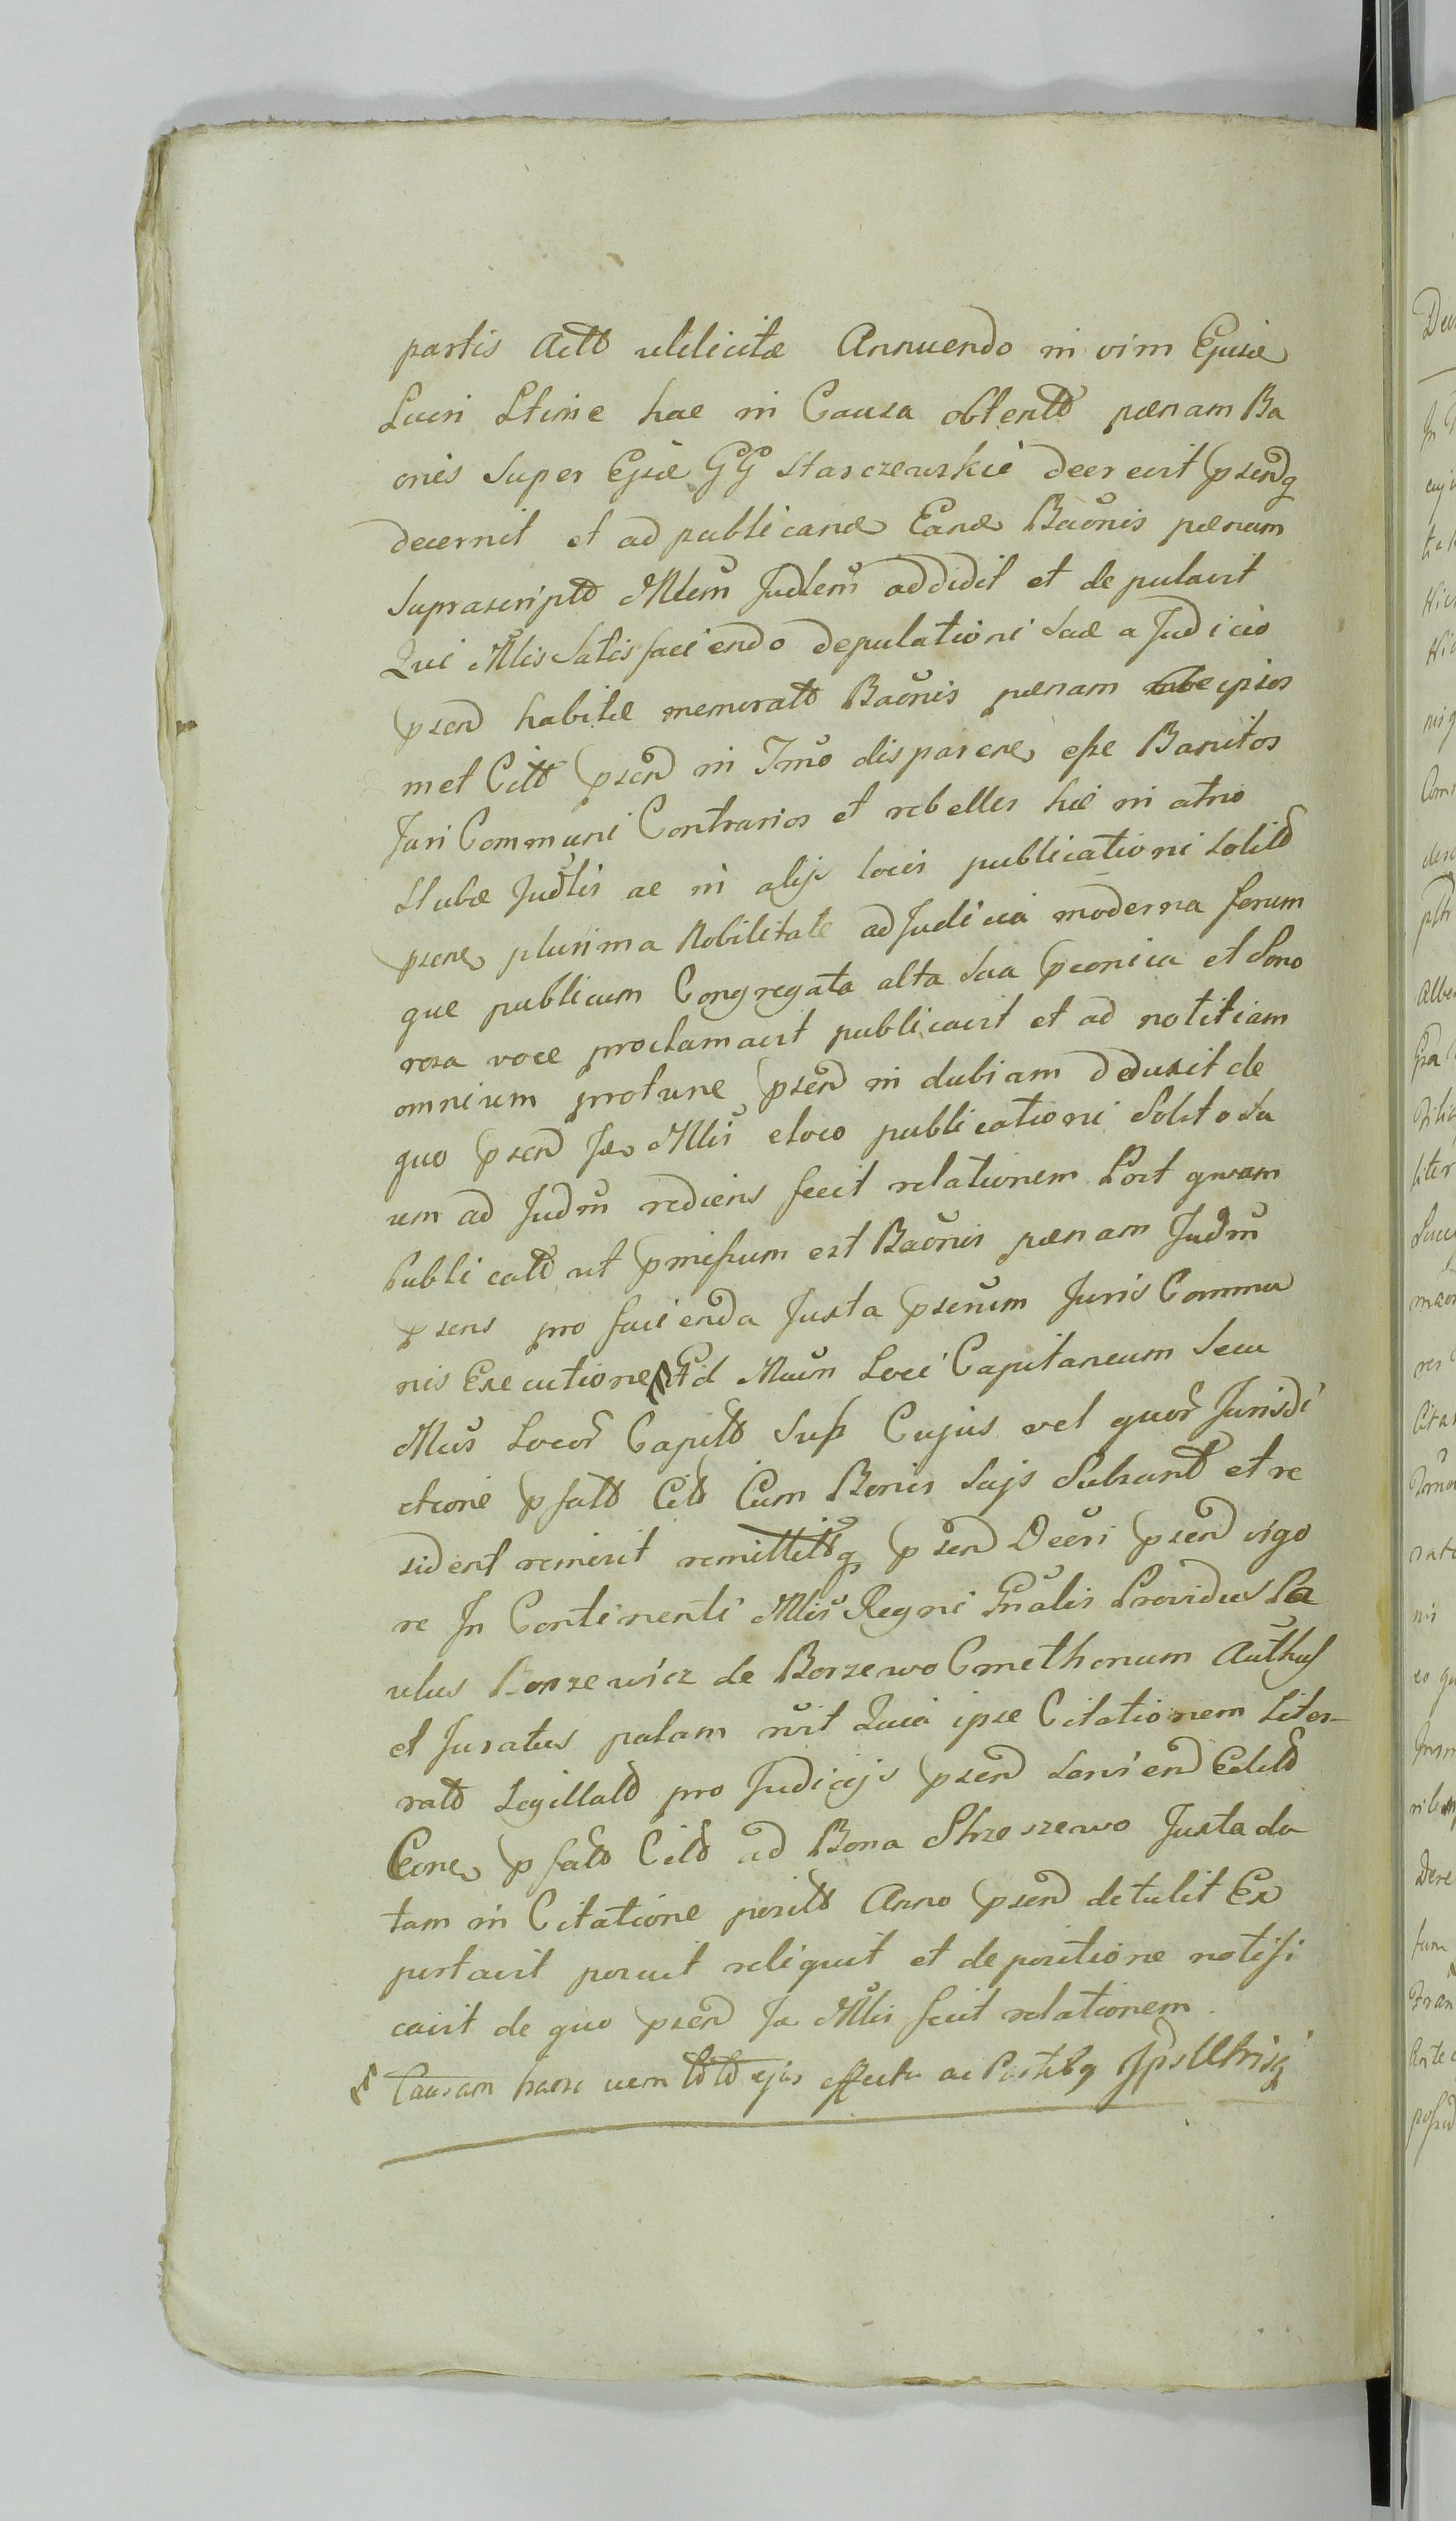 partis Actt utilicitæ Annuendo in vim Ejusd
Lucri Ltirie hac in Causa obtentt pænam Ba
onis Super Ejsd GG Starczewskie decrevit psendq
decernit et ad publicand Eand Baonis pænam
Suprascriptt Mlem Judlem addidit et deputavit
Qui Mlis Satisfaciendo deputationi Suæ a Judicio
psend habitæ memoratt Baonis pænam ipsos
met Citt psend in Tmo disparene esse Banitos
Juri Communi Contrarios et rebelles hic in atrio
Stubæ Judlis ac in alijs locis publicationi Solitt
psene plurima Nobilitate ad Judicia moderna forum
que publicum Congregata alta Sua pconica et Sono
rosa voce proclamavit publicavit et ad notitiam
omnium protunc psend in dubiam deduxit de
quo psend Ja Mlis eloco publicationi Solito Su
um ad Judm rediens fecit relationem Post quam
Publicatt ut pmissum est Baonis pænam Judm
psens pro facienda Juxta pserum Juris Commu
nis Executione Ad Mum Loci Capitaneum Seu
Mus Locor Capitt Sub Cujus vel quor Jurisdi
ctione pfatt Citt Cum Bonis Suis Subsunt et re
sident remisit remittitq psend Decri psend vigo
re In Continenti Mlis Regni Gnalis Providus Pa
ulus Borzewicz de Borzewo Cmethonum Authus
et Juratus palam rvit Quia ipse Citationem Liter-
ratt Sigillatt pro Judicijs psend Serviend Editt
Cone pfatt Citt ad Bona Strzeszewo Juxta da
tam in Citatione positt Anno psend detulit Ex
portavit posuit reliquit et depositione notifi
cavit de quo psend Ja Mlis fecit relationem.
Causam hanc cum ttt ejus effectu ac Partibq Ipsis Utrisq